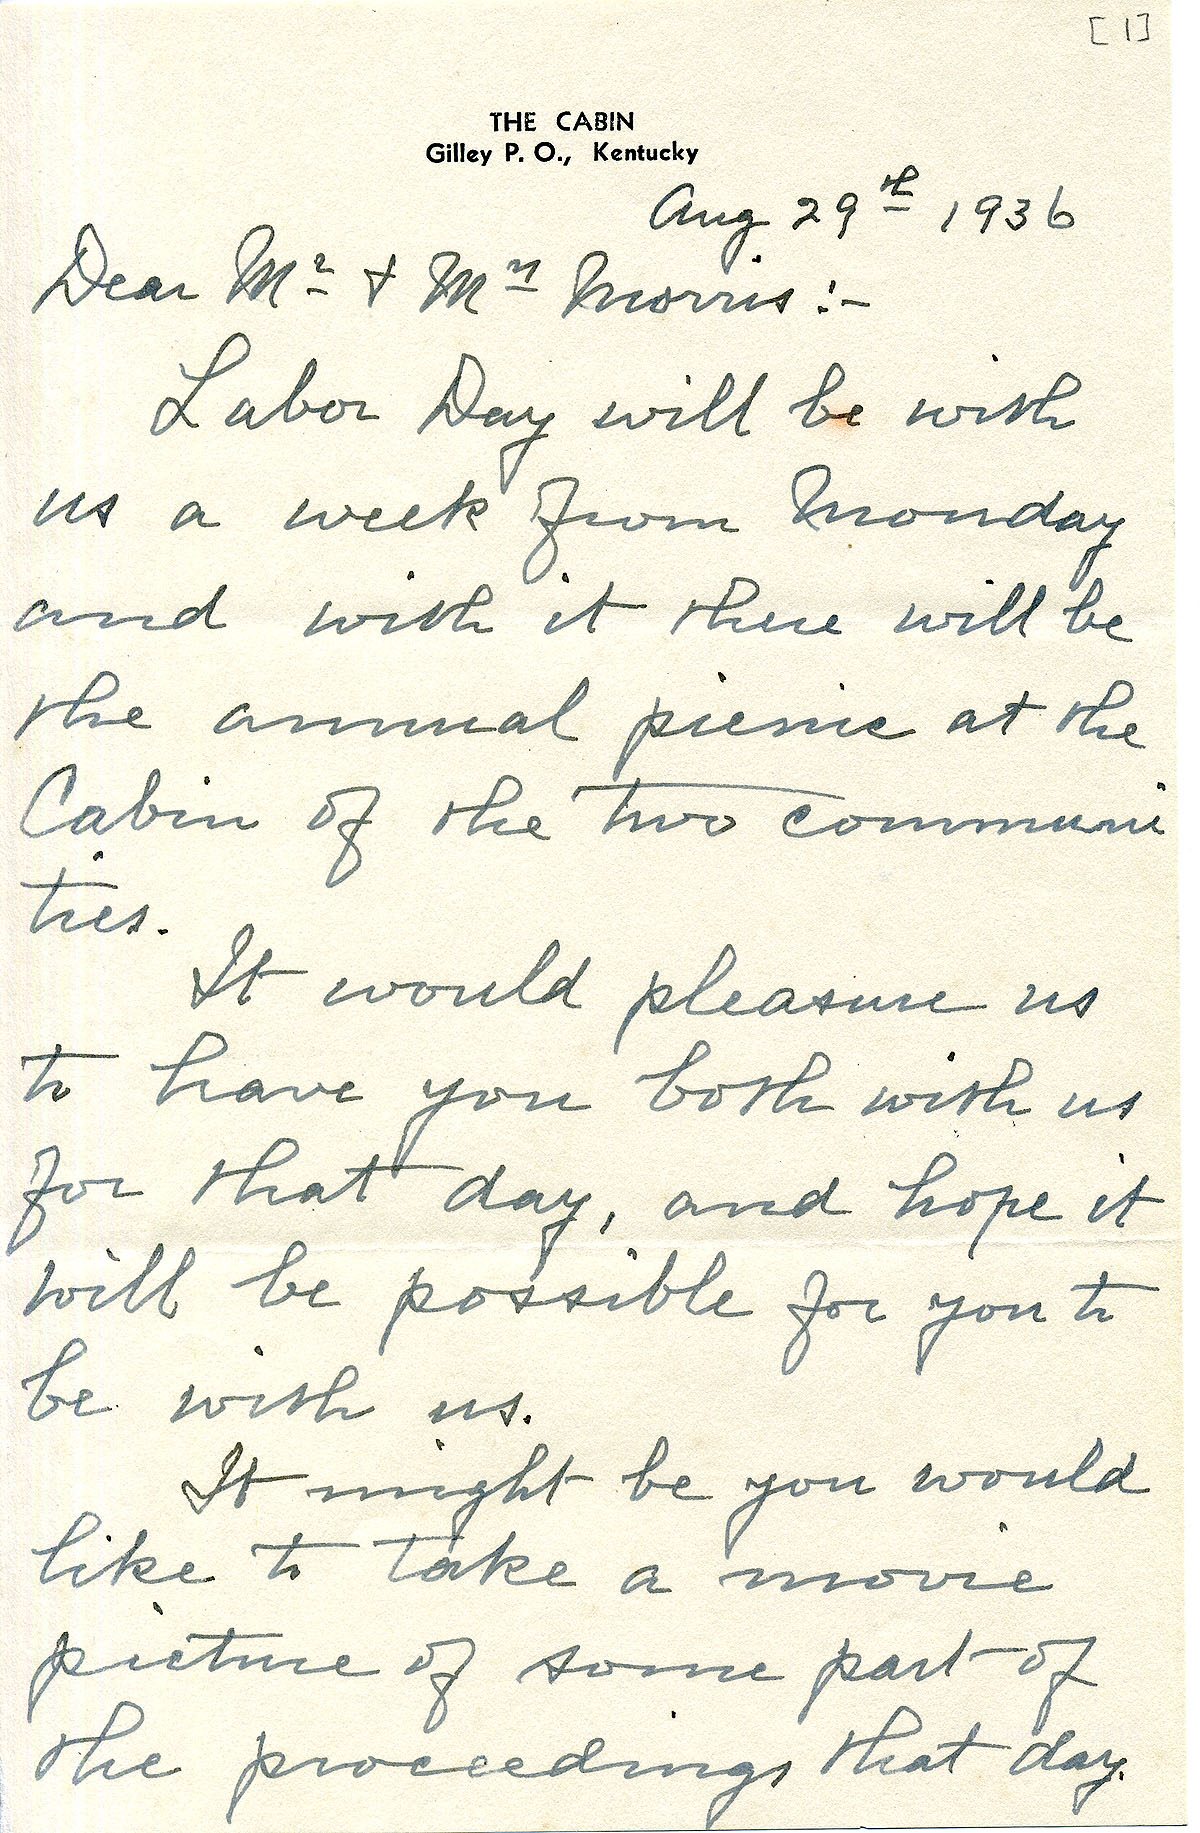 [1]
THE CABIN
Gilley P. O., Kentucky
Aug 29th 1936
Dear Mr & Mrs Morris:-
Labor Day will be with
us a week from Monday
and with it there will be
the annual picnic at the
Cabin of the two communi
ties.
It would pleasure us
to have you both with us
for that day, and hope it
will be possible for you to
be with us.
It might be you would
like to take a movie
picture of some part of
the proceedings that day.